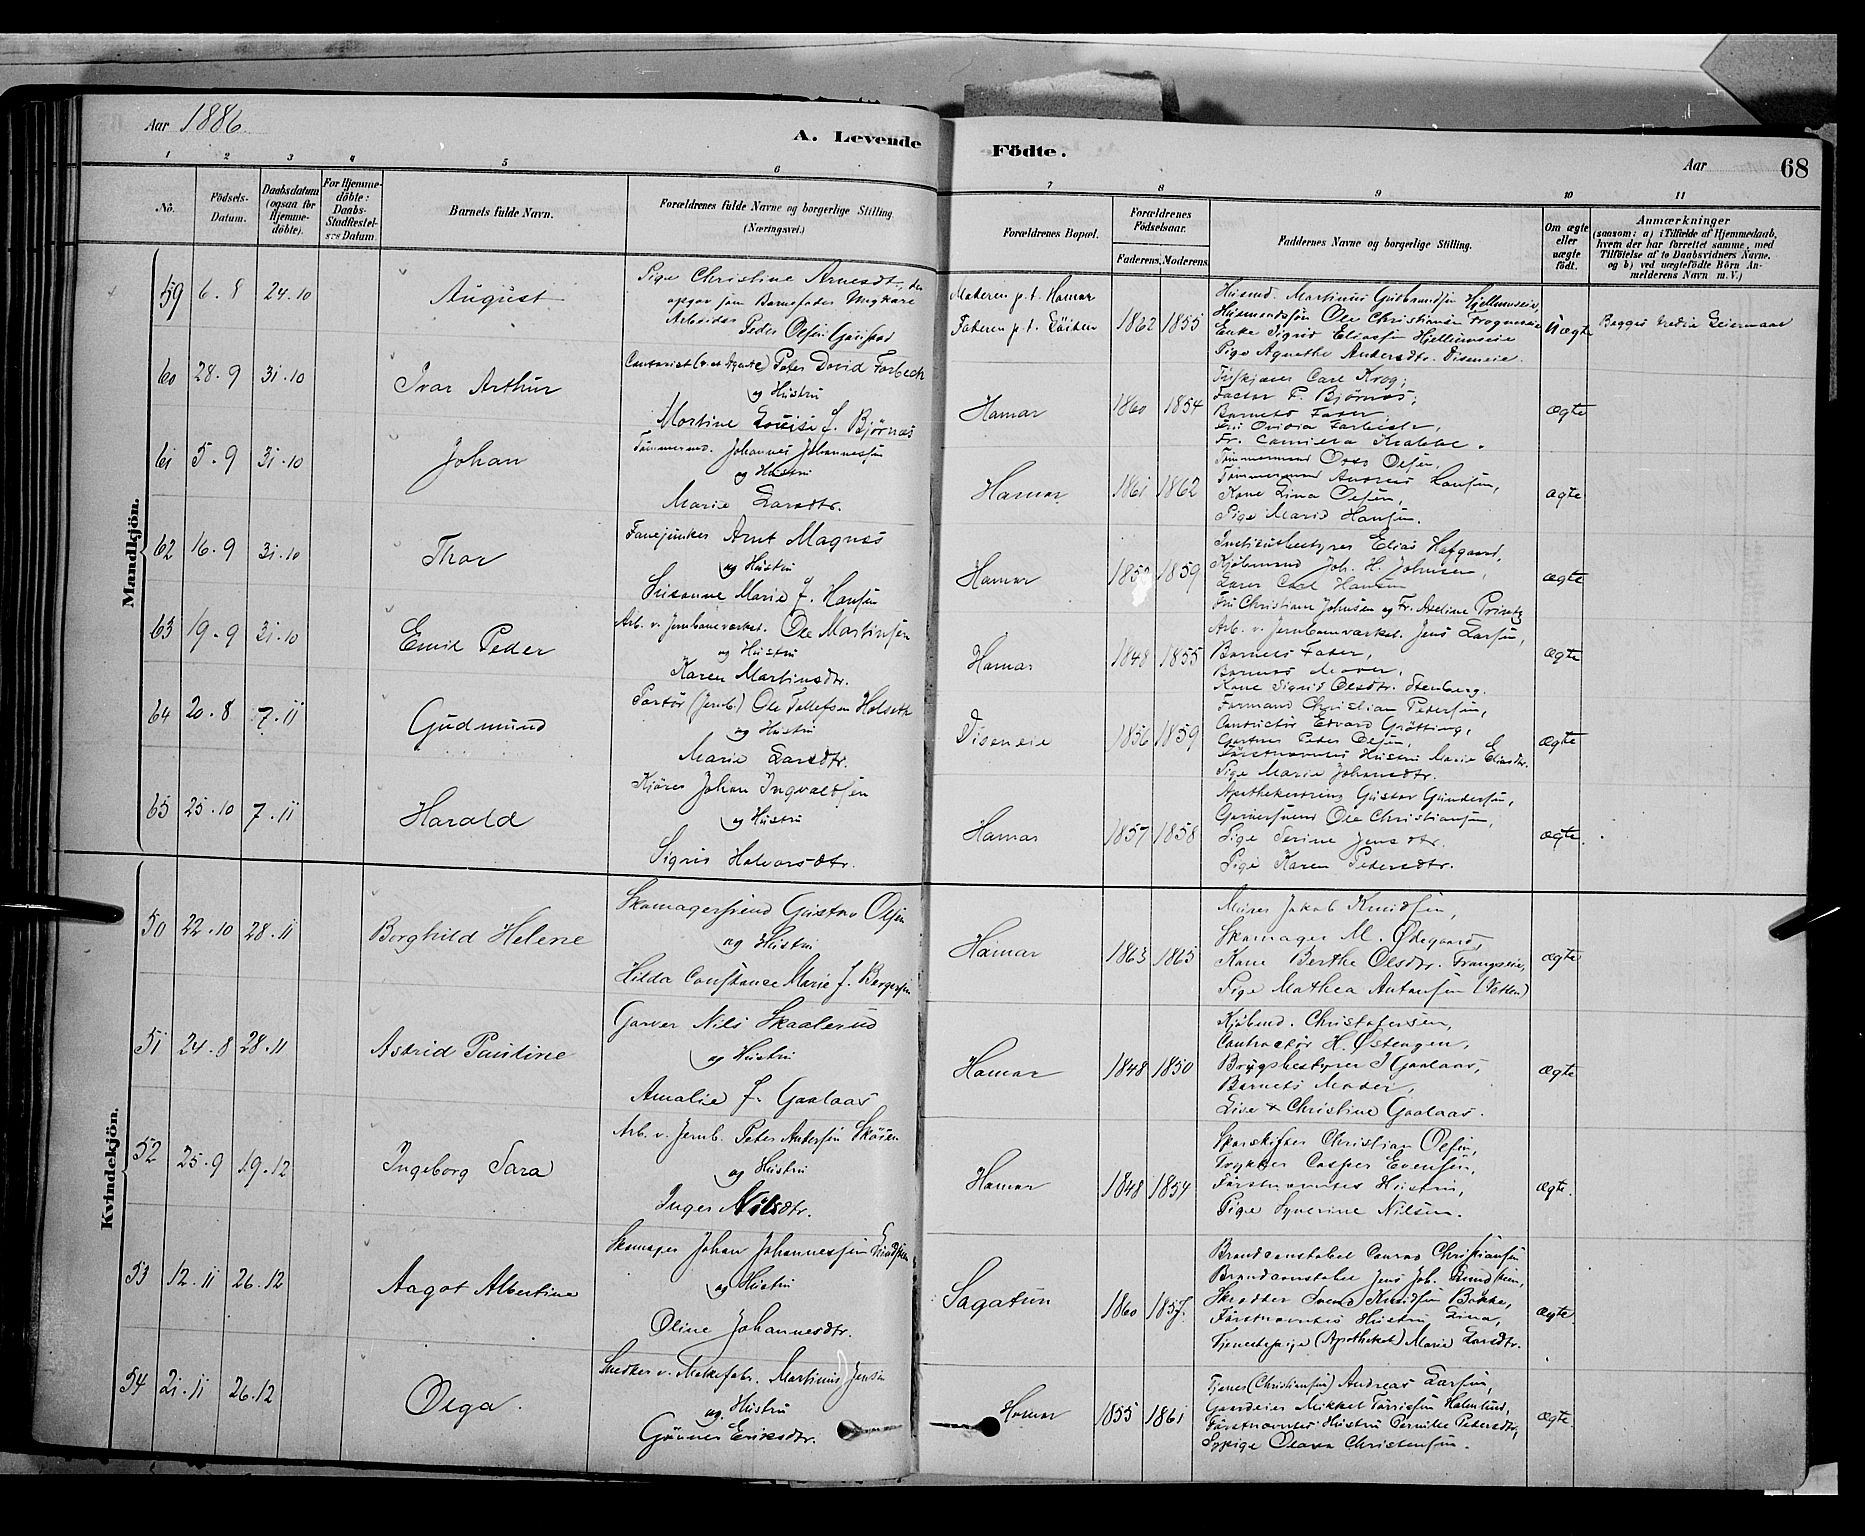 Aar 1886.
A. Levende Födte.
Aar 68
1 2 3 4 5 6 7 8 9 10 11
No.
Födsels-Datum.
Daabsdatum (ogsaa for Hjemmedöbte).
For Hjemmedöbte: Daabs-Stadfæstelses Datum.
Barnets fulde Navn.
Forældrenes fulde Navne og borgerlige Stilling (Næringsvei.)
Forældrenes Bopæl.
Forældrenes Födselsaar.
Faderens. Moderens.
Faddernes Navne og borgerlige Stilling.
Om ægte eller uægte födt.
Anmærkninger
(saasom: a) i Tilfælde af Hjemmedaab, hvem der har forrettet samme, med Tilföielse af to Daabsvidners Navne. og b) ved uægtefödte Börn Anmelderens Navn m. V.)
Mandkjön.
59 6.8 24.10 August
Pige Christine Arnesdt., der
opgav som Barnefader Ungkarl
Arbeider Peder Olsen
Moderen p.t. Hamar
Faderen p.t. Löiten
1862 1855
Husmd. Martinus Gudbrandsen Hjellumseie,
Husmandssön Ole Christiansen Frognereie
Enke Sigrid Eliassen Hjellumseie
Pige Agnethe Andersdtr. Diseneie.
Uægte
Begges tredie Leiermaal
60 28.9 31.10 Ivar Arthur
Peter David Forbech
og Hustru
Martine Louise f. Bjørnøs
Hamar 1860 1854
Carl Krog;
Factor P. Bjørnøs;
Barnets Fader,
Fru Ovidia Forbech,
Fr. Camilla
ægte
61 5.9 31.10 Johan
Tömmermd. Johannes Johannessen
og Hustru
Marie Larsdtr.
Hamar 1861 1862
Tömmermand Olsen,
Tömmermand Andreas Hansen,
Kone Lina Olsen,
Pige Marie Hansen.
ægte
62 16.9 31.10 Thor
Fanejunker Arnt Magnus
og Hustru
Susanne Marie f. Hansen
Hamar 1859
Institutbestyrer Elias Hofgaard,
Kjöbmand Joh. H. Johnsen,
Lærer Carl Hansen
Fru Christiane Johnsen og Fr. Aveline Printz
ægte
63 19.9 31.10 Emil Peder
Arb. v. Jernbaneværket. Ole Martinsen
og Hustru
Karen Martinsdtr.
Hamar 1848 1855
Arb. v. Jernbaneværket. Jens Larsen,
Barnets Fader,
Barnets Moder,
Kone Sigrid Olsdtr. Stenberg.
ægte
64 20.8 7.11 Gudmund
Portör (Jernb.) Ole Tollefsen Holseth
og Hustru
Marie Larsdtr.
Diseneie 1856 1859
Formand Christian Pedersen,
Conductör Edvard Gröttting,
Gartner Peder Olsen,
Förstnævntes Hustru Marie Eliasdtr.
Pige Marie Johansdtr.
Ægte
65 25.10 7.11 Harald
Kjörer Johan Ingvaldsen
og Hustru
Sigrid Halvorsdtr.
Hamar 1857 1858
Apothekerdreng Gustav Gundersen,
Garversvend Ole Christiansen,
Pige Serine Jensdtr.
Pige Karen Pedersdtr.
ægte.
Kvindekjön.
50 22.10 28.11 Borghild Helene
Skomagersvend Gustav Olsen
og Hustru
Hilda Constance Marie f. Bergersen
Hamar 1863 1865
Murer Jakob Knudsen,
Skomager M. Ødegaard,
Kone Berthe Olsdtr.
Pige Mathea Antonsen
ægte
51 24.8 28.11 Astrid Pauline
Garver Nils Skaalerud
og Hustru
Amalie f. Gaalaas
Hamar 1848 1850
Kjöbmd. Christofersen,
Contractör H. Østengen,
Brugsbestyrer J. Gaalaas,
Barnets Moder,
Live & Christine Gaalaas.
ægte
52 25.9 19.12 Ingeborg Sara
Arb. v. Jernb. Peter Andersen Skösen
og Hustru
Inger Nilsdtr.
Hamar 1848 1854
Sporskifter Christian Olsen,
Trykker Casper Evensen,
Förstnævntes Hustru,
Pige Syverine Nilsen.
ægte.
53 12.11 26.12 Aagot Albertine
Skomager Johan Johannessen
og Hustru
Oline Johannesdtr.
Sagatun 1860 1857.
Brandconstabel Conrad Christiansen
Brandconstabel Jens Joh.
Skrædder Svend Knudsen Bakke,
Förstnævntes Hustru Lina,
Tjenestepige (Apotheket) Marie Larsdtr.
ægte.
54 21.11 26.12 Olga.
Snedker v. Martinus Jensen
og Hustru
Gunner Eriksdtr.
Hamar 1855 1861
Tjener (Christiansen) Andreas Larsen,
Gaardeier Mikkel Holmlund,
Förstnævntes Hustru Pernille Pedersdtr,
Sypige Olava Christensen.
ægte.